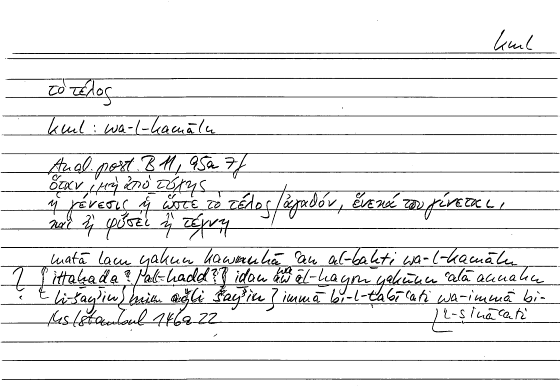 kml
τὸ τέλος
kml : wa-l-kamālu
Anal. post. B 11, 95a 7f
ὅταν, μὴ ἀπὸ τύχης
ἡ γένεσις ᾖ ὥστε τὸ τέλος / ἀγαθόν, ἕνεκά του γίνεται,
καὶ ἢ φύσει ἢ τέχνῃ
matā lam yakun kawnuhā ʿan al-baḫti wa-l-kamālu
? { ittaḥada? / al-ḥadd? } iḏan wa al-ḫayru yakūnu ʿalā annahu
li-šayʾin } min aǧli šayʾin } immā bi-l-ṭabīʿati wa-immā bi-
l-ṣināʿati
Ms Istanbul 146a 22